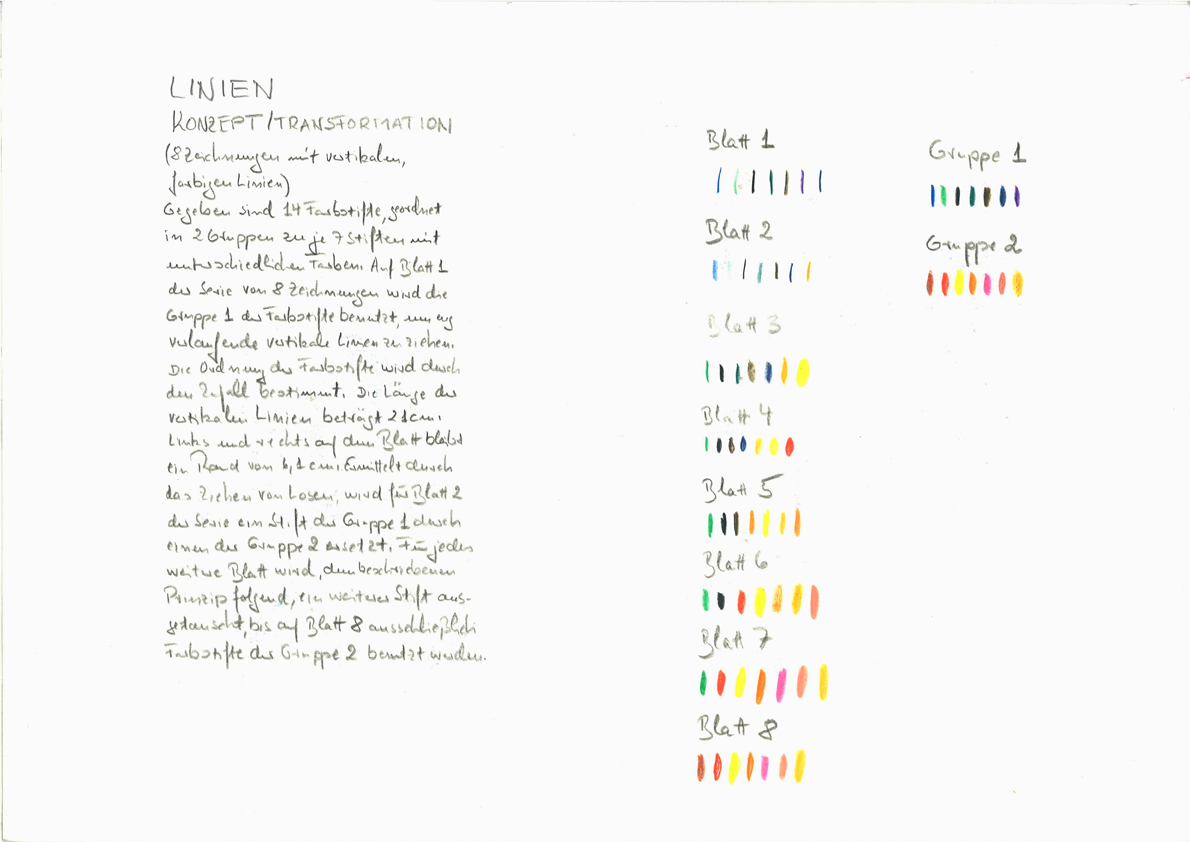 LINIEN
KONZEPT/TRANSFORMATION
(8 Zeichnungen mit vertikalen,
farbigen Linien)
Gegeben sind 14 Farbstifte, geordnet
in 2 Gruppen zu je 7 Stiften mit
unterschiedlichen Farben. Auf Blatt 1
der Serie von 8 Zeichnungen wird die
Gruppe 1 der Farbstifte benutzt, um eng
verlaufende vertikale Linien zu ziehen.
Die Ordnung der Farbstifte wird durch
den Zufall bestimmt. Die Länge der
vertikalen Linien beträgt 21cm.
Links und rechts auf dem Blatt bleibt
ein Rand von 6,1 cm. Ermittelt durch
das Ziehen von Losen, wird für Blatt 2
der Serie ein Stift der Gruppe 1 durch
einen der Gruppe 2 ersetzt. Für jedes
weitere Blatt wird, dem beschriebenen
Prinzip folgend, ein weiterer Stift aus-
getauscht, bis auf Blatt 8 ausschließlich
Farbstifte der Gruppe 2 benutzt werden.
Blatt 1
Blatt 2
Blatt 3
Blatt 4
Blatt 5
Blatt 6
Blatt 7
Blatt 8
Gruppe 1
Gruppe 2